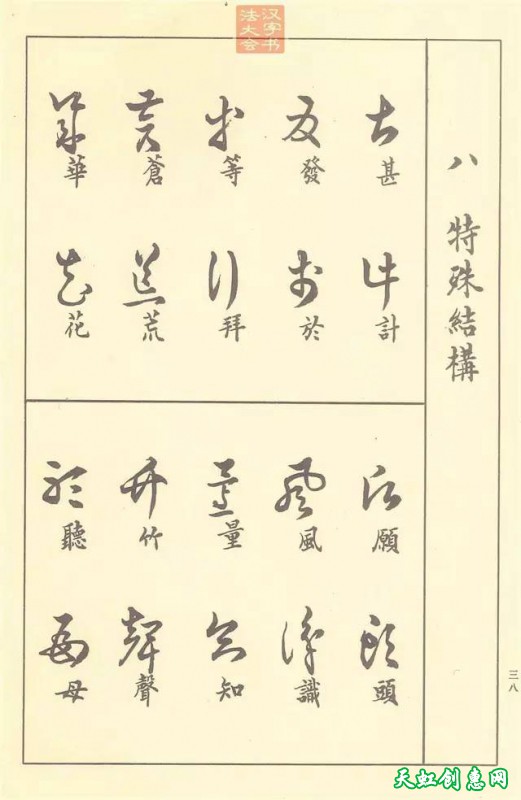 汉字书
法大会
八 特殊結構
甚
計
發
於
等
拜
蒼
荒
華
花
願
頭
風
識
量
知
竹
聲
聽
母
三八
天虹创惠网